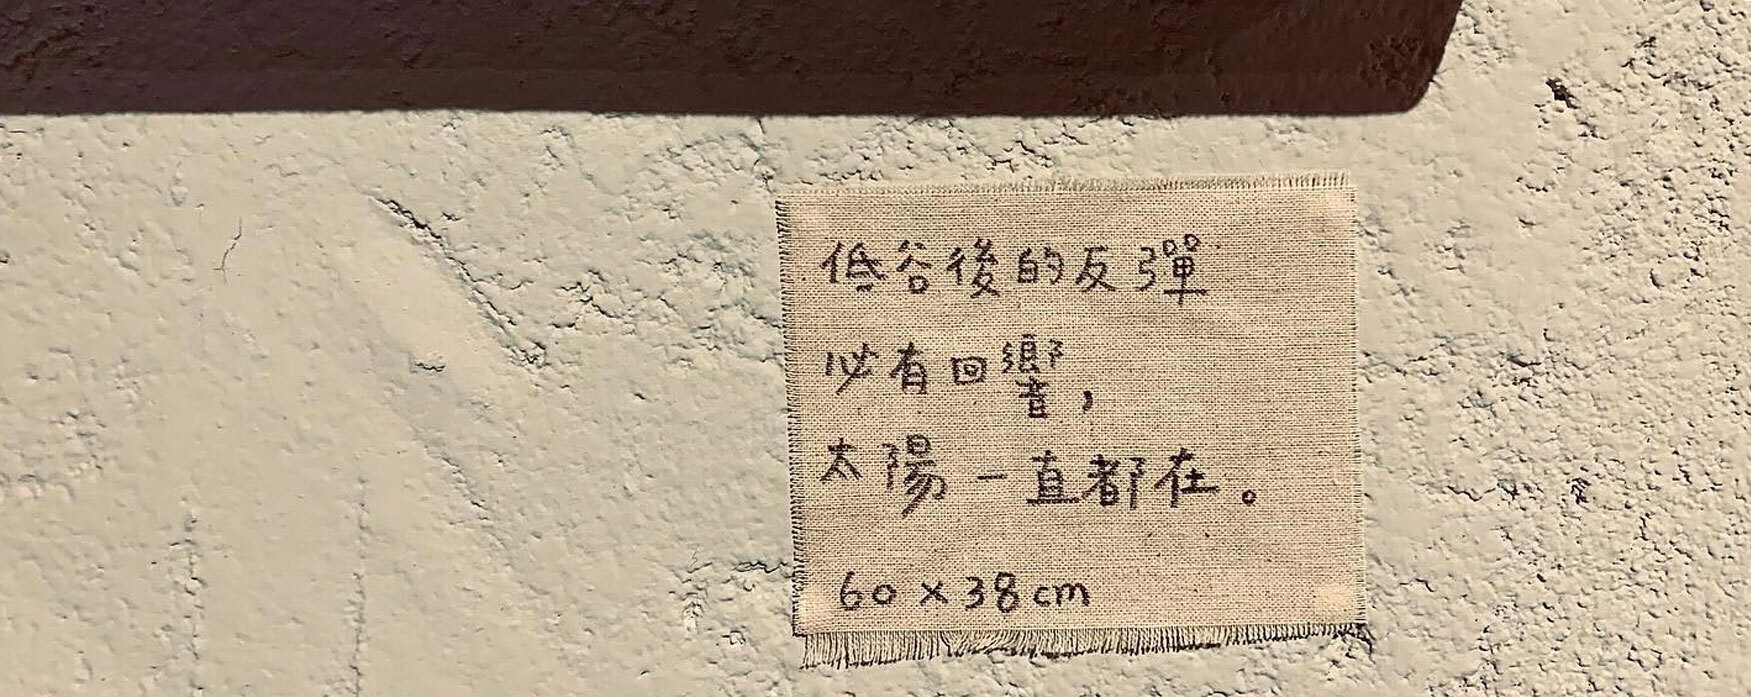 低谷後的反彈
必有回響，
太陽一直都在。
60×38cm